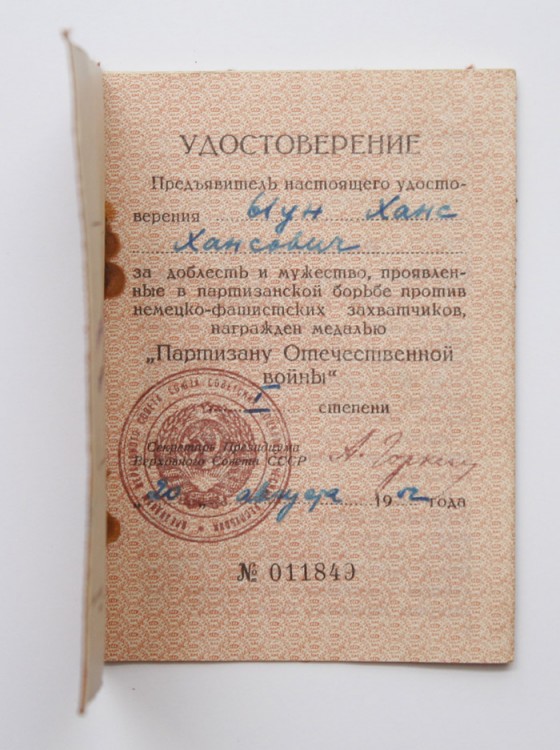 УДОСТОВЕРЕНИЕ
Предъявитель настоящего удосто-
верения Ыун Ханс
Хансович
за доблесть и мужество, проявлен-
ные в партизанской борьбе против
немецко-фашистских захватчиков,
награжден медалью
„Партизану Отечественной
войны“
I степени
Секретарь Президиума
Верховного Совета СССР
А. Горкин
20 августа 19 года
№ 011849